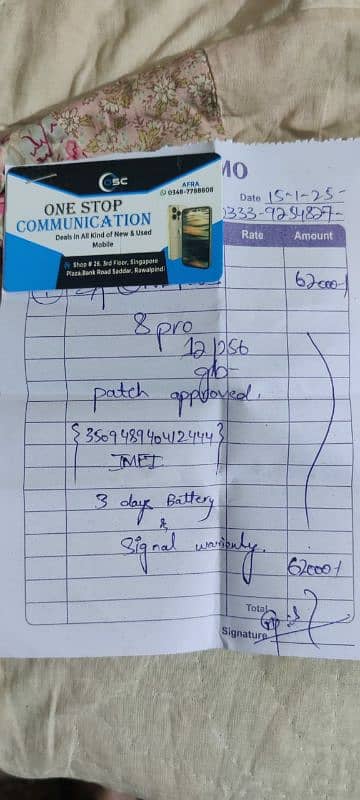 OSC
AFRA
0348-7788808
ONE STOP
COMMUNICATION
Deals in All Kind of New & Used
Mobile
Shop # 26, 3rd Floor, Singapore
Plaza, Bank Road Saddar, Rawalpindi
MO
Date 15-1-25-
0333-9254827-
Rate Amount
62000/
8 pro
12/256
patch approved.
{350948940412444}
IMEI
3 days Battery
&
Signal warranty.
62000/
Total
Signature